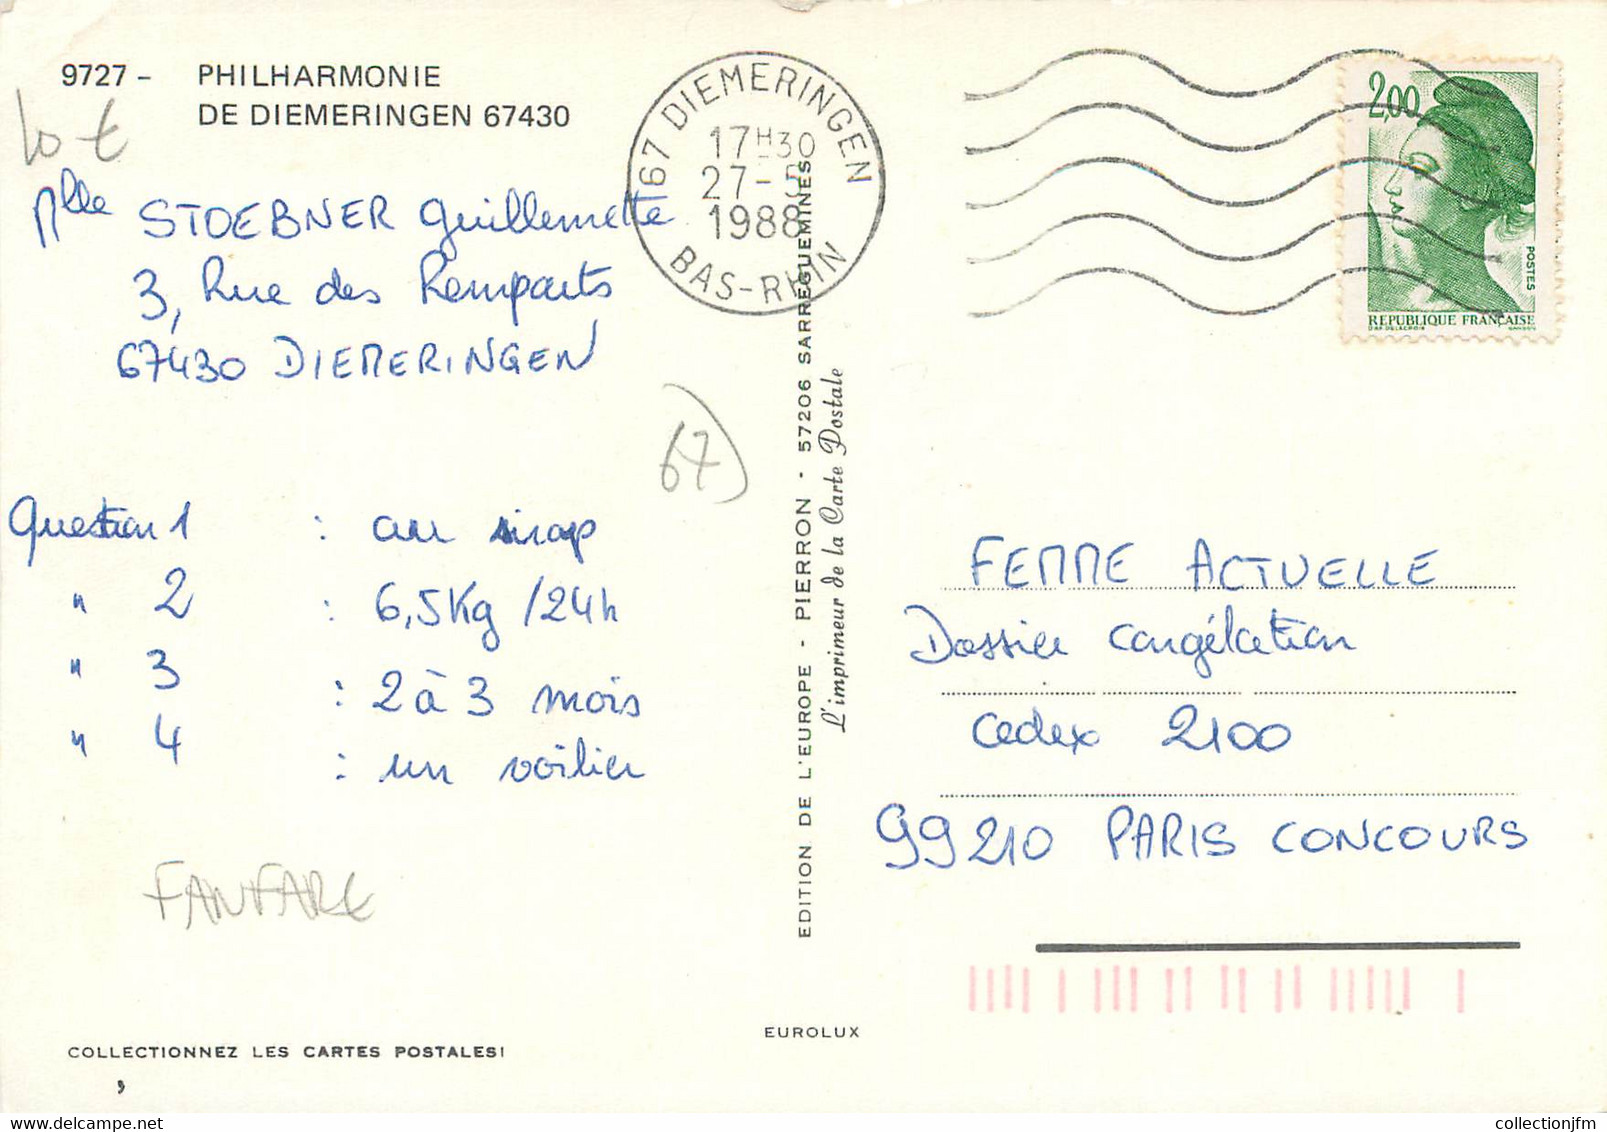 9727 - PHILHARMONIE
DE DIEMERINGEN 67430
10 €
Mlle STOEBNER Guillemette
3, Rue des Remparts
67430 DIEMERINGEN
67
Question 1 : au sirop
" 2 : 6,5Kg /24h
" 3 : 2 à 3 mois
" 4 : un voilier
FANFARE
COLLECTIONNEZ LES CARTES POSTALES!
67 DIEMERINGEN
17H30
27-5
1988
BAS-RHIN
EDITION DE L'EUROPE - PIERRON - 57206 SARREGUEMINES
L'imprimeur de la Carte Postale
EUROLUX
2,00
POSTES
REPUBLIQUE FRANÇAISE
FEMME ACTUELLE
Dossier congélation
Cedex 2100
99210 PARIS CONCOURS
collectionjfm